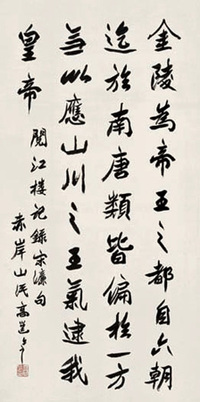 金陵為帝王之都自六朝
迄於南唐類皆偏據一方
無以應山川之王氣逮我
皇帝
閱江樓記錄宋濂句
赤岸山民高